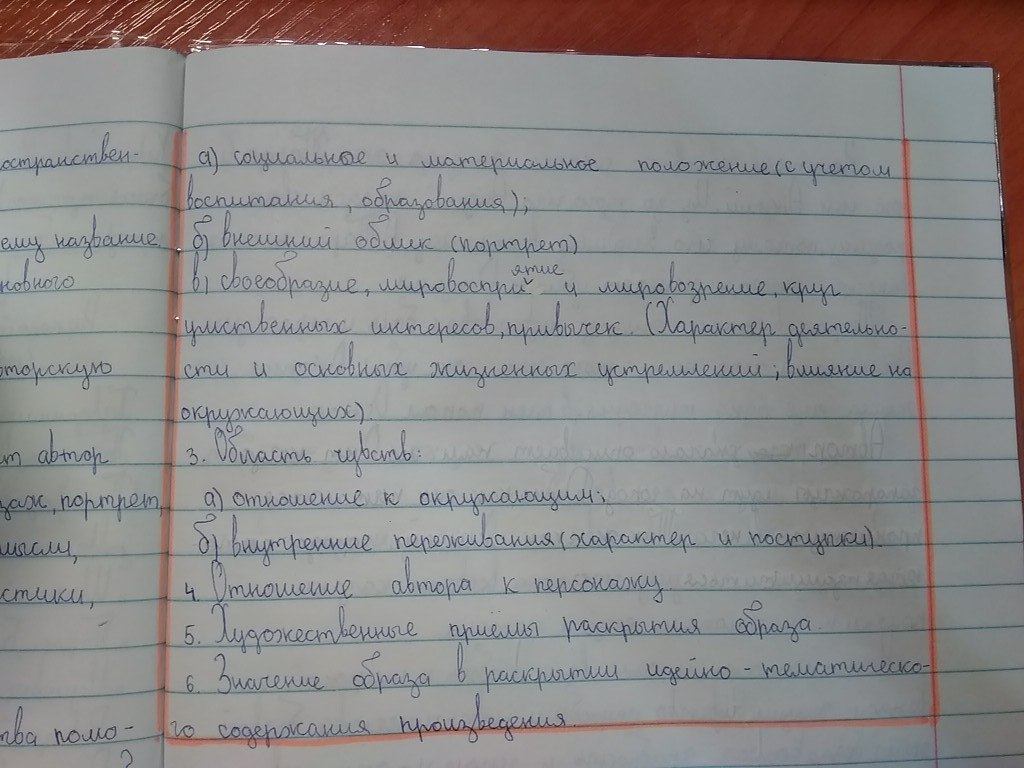 остранствен-
ему название
новного
вторскую
ет автор
заж, портрет,
мысли,
стики,
тва помо-
?
а) социальное и материальное положение (с учетом
воспитания, образования);
б) внешний облик (портрет)
в) своеобразие, мировосприятие и мировозрение, круг
умственных интересов, привычек. (Характер деятельно-
сти и основных жизненных устремлений; влияние на
окружающих).
3. Область чувств:
а) отношение к окружающим;
б) внутренние переживания (характер и поступки).
4. Отношение автора к персонажу.
5. Художественные приёмы раскрытия образа.
6. Значение образа в раскрытии идейно - тематическо-
го содержания произведения.